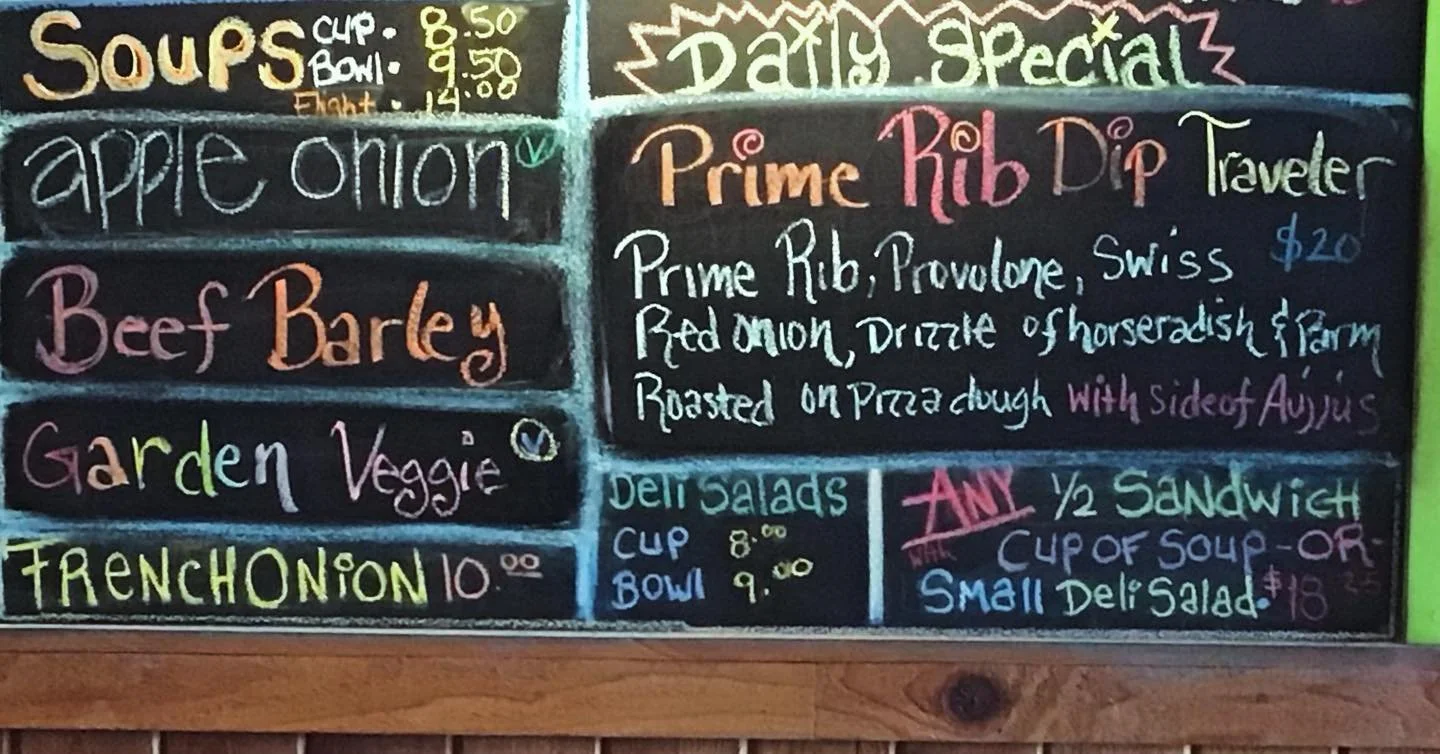 Soups CUP. 8.50
BOWl. 9.50
Flight. 14.00
apple onion V
Beef Barley
Garden Veggie V
FRENCH ONiON 10.00
Daily Special
Prime Rib Dip Traveler
$20
Prime Rib, Provolone, Swiss
Red onion, Drizzle of horseradish & Parm
Roasted on Pizza dough with side of Aujjus
Deli Salads
CUP 8.00
BOWl 9.00
ANY 1/2 SANDWiCH
with CUP OF SOUP -OR-
Small Deli Salad. $18 25